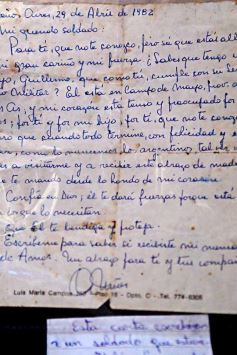 Aires, 29 de Abril de 1982
Mi querido soldado:
Para tí, que no te conozco, pero sé que estás allá
mi gran cariño y mi fuerza. ¿Sabes que tengo un
Guillermo, que como tú, cumple con su Servicio
Militar? Él está en Campo de Mayo,
As, y mi corazón está tenso y preocupado por
por tí y por mi hijo, por tí, que no te conozco
que cuando todo termine, con felicidad y
como lo merecemos los argentinos, tal vez
a visitarme y a recibir este abrazo de madre
te mando desde lo hondo de mi corazón.
Confía en Dios; él te dará fuerzas porque está
lo necesitan.
Que Él te bendiga y proteja.
Escríbeme para saber si recibiste mi mensaje
de Amor. Un abrazo para tí y tus compañeros
Luis María Campos Piso 16 - Dpto. C - Tel. 774-6306
Esta carta
a un soldado que